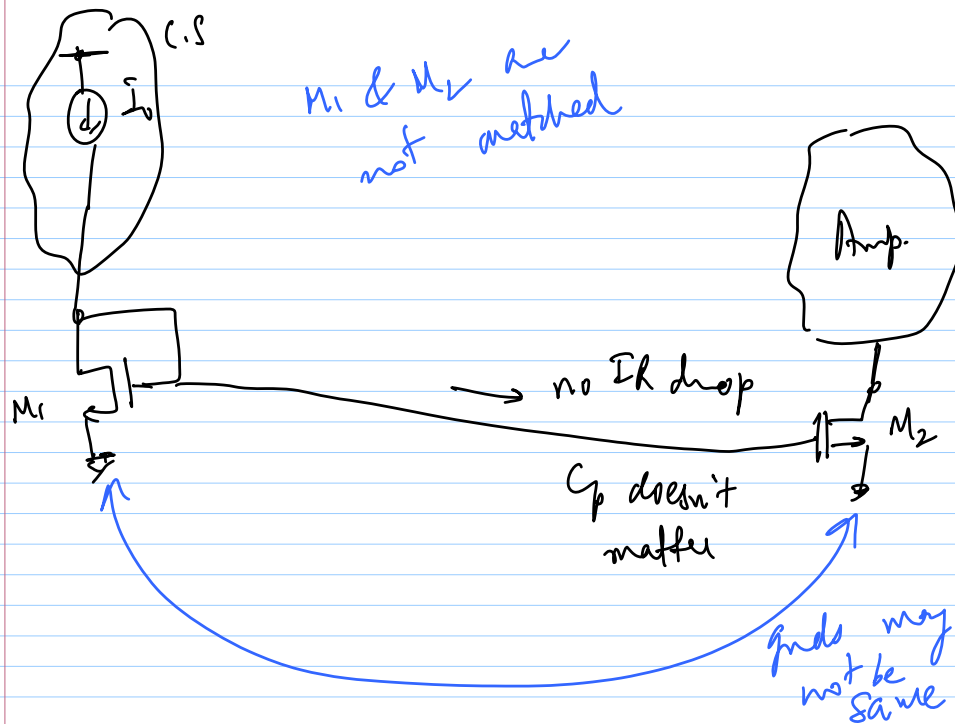 C.S
I₀
M₁ & M₂ are
not matched
Amp.
no IR drop
M₁
M₂
Cp doesn't
matter
gnds may
not be
same